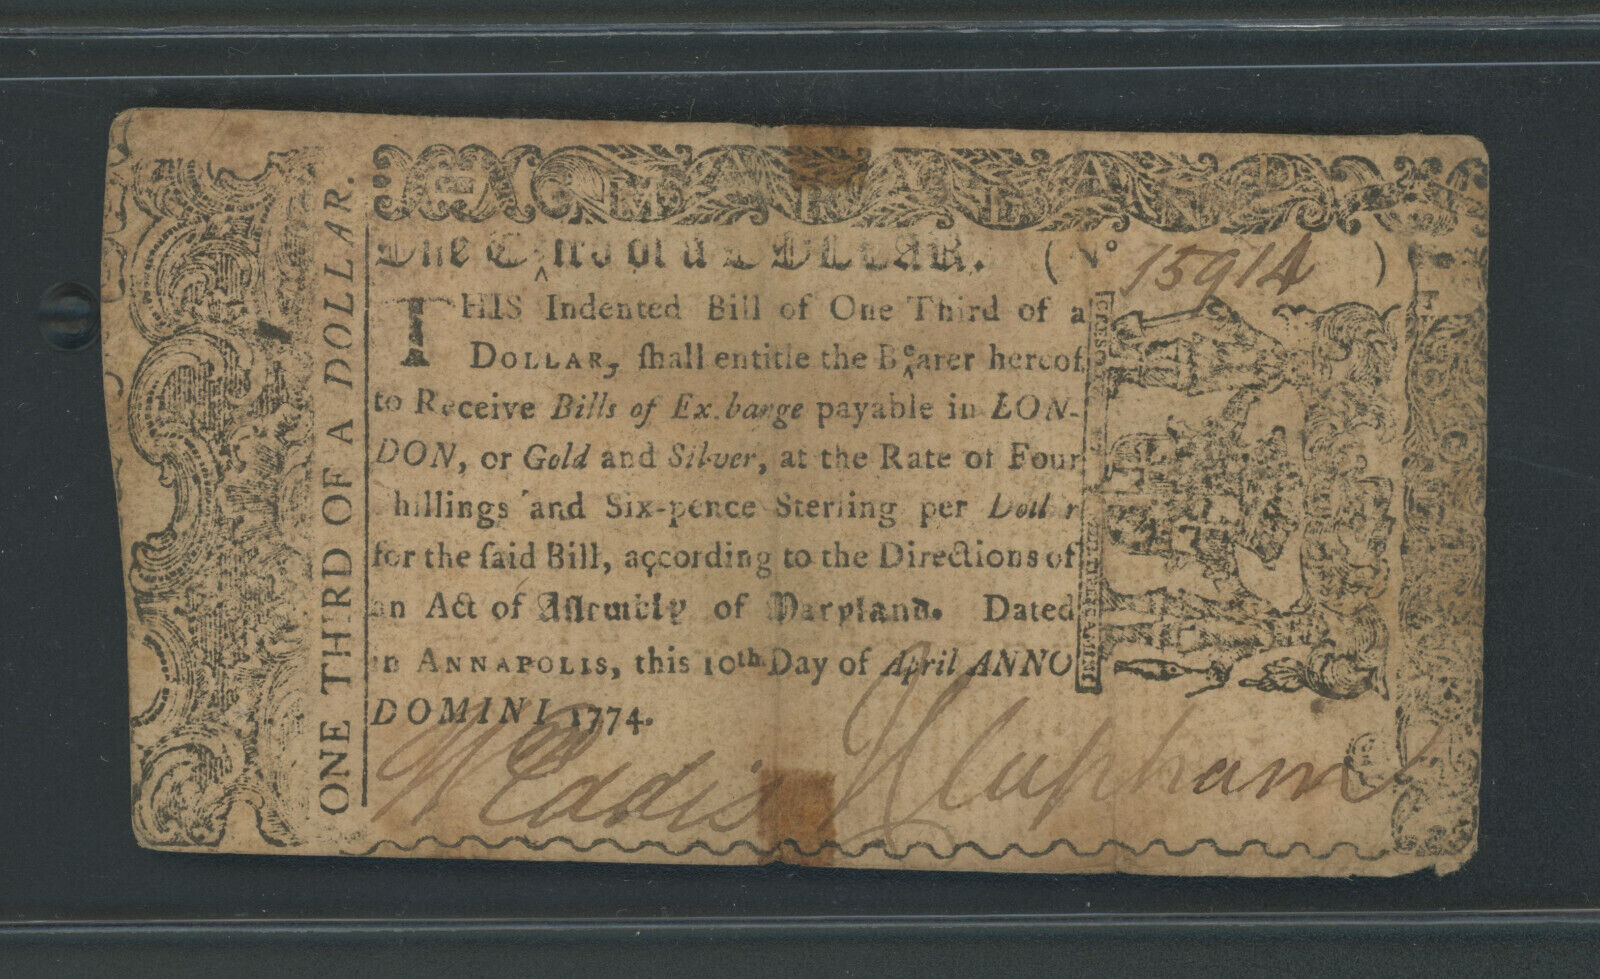 MARYLAND
One Third of a DOLLAR. (No 15914)
THIS Indented Bill of One Third of a
DOLLAR, ſhall entitle the Be‸arer hereof
to Receive Bills of Ex.bange payable in LON-
DON, or Gold and Silver, at the Rate of Four
hillings and Six-pence Sterling per Doll r
for the ſaid Bill, according to the Directions of
an Act of Aſſembly of Maryland. Dated
in ANNAPOLIS, this 10th Day of April ANNO
DOMINI 1774.
W Eddis J Clapham
ONE THIRD OF A DOLLAR.